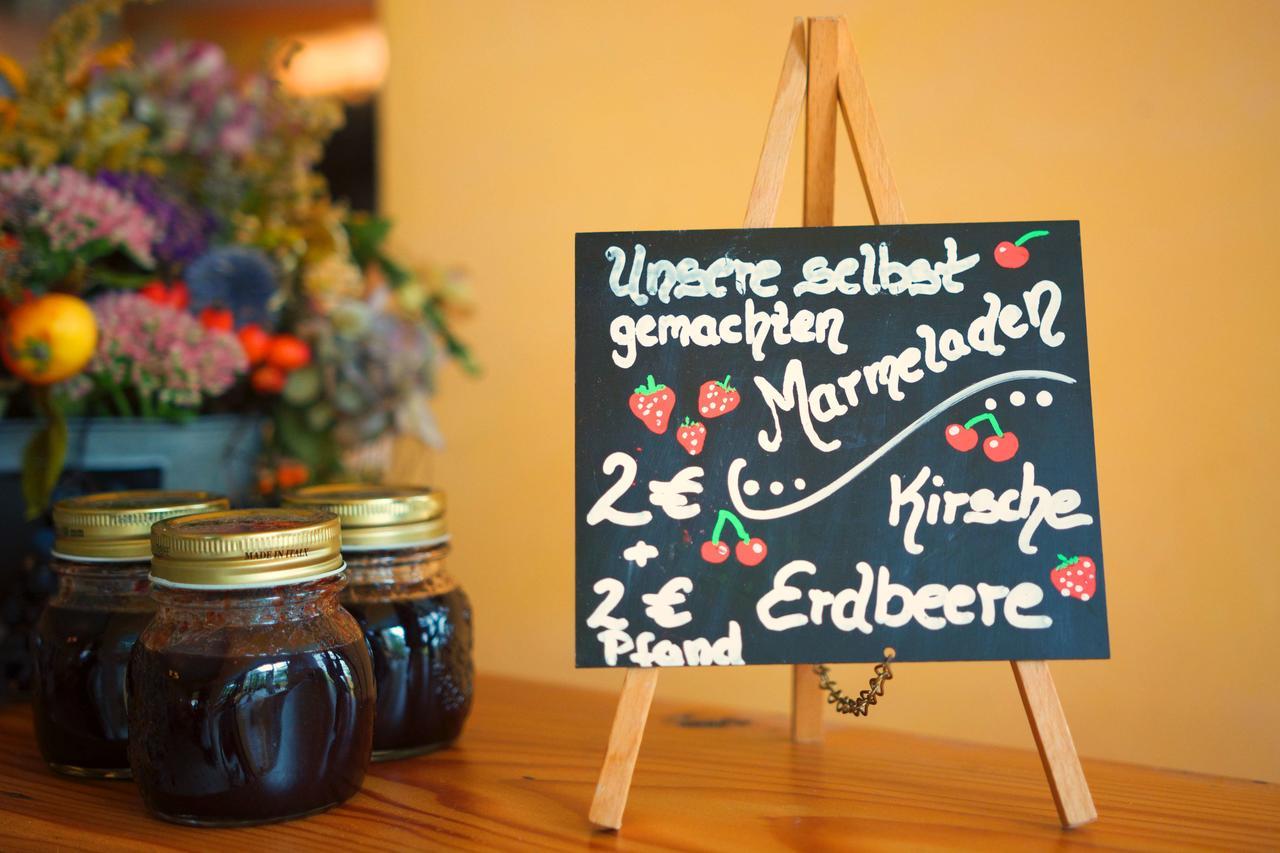 Unsere selbst
gemachten
Marmeladen
2 €
+
2 €
Pfand
Kirsche
Erdbeere
MADE IN ITALY